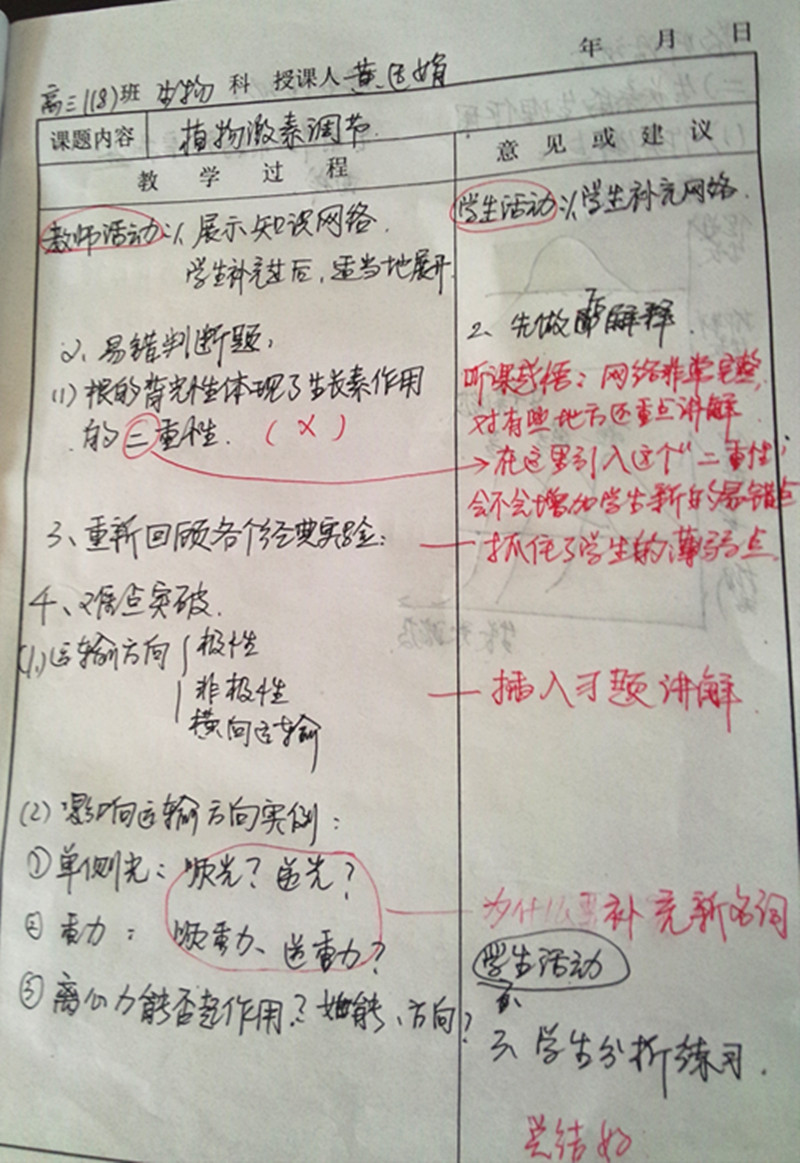 年 月 日
高三(18)班 生物 科 授课人 黄
课题内容 植物激素调节
教 学 过 程
意 见 或 建 议
教师活动:1、展示知识网络.
学生补充过后,适当地展开
2、易错判断题:
(1)根的背光性体现了生长素作用
的二重性. (×)
3、重新回顾各个经典实验:
4、难点突破.
(1)运输方向 极性
非极性
横向运输
(2)影响运输方向实例:
①单侧光: 顺光?逆光?
②重力: 顺重力、逆重力?
③离心力能否起作用?如能、方向?
学生活动:1、学生补充网络.
2、先做 再解释.
听课感悟:网络非常完整,
对有些地方还重点讲解
在这里引入这个"二重性"
会不会增加学生新的易错点
抓住了学生的薄弱点
插入习题讲解
为什么要补充新名词
学生活动
3、学生分析练习.
总结好.